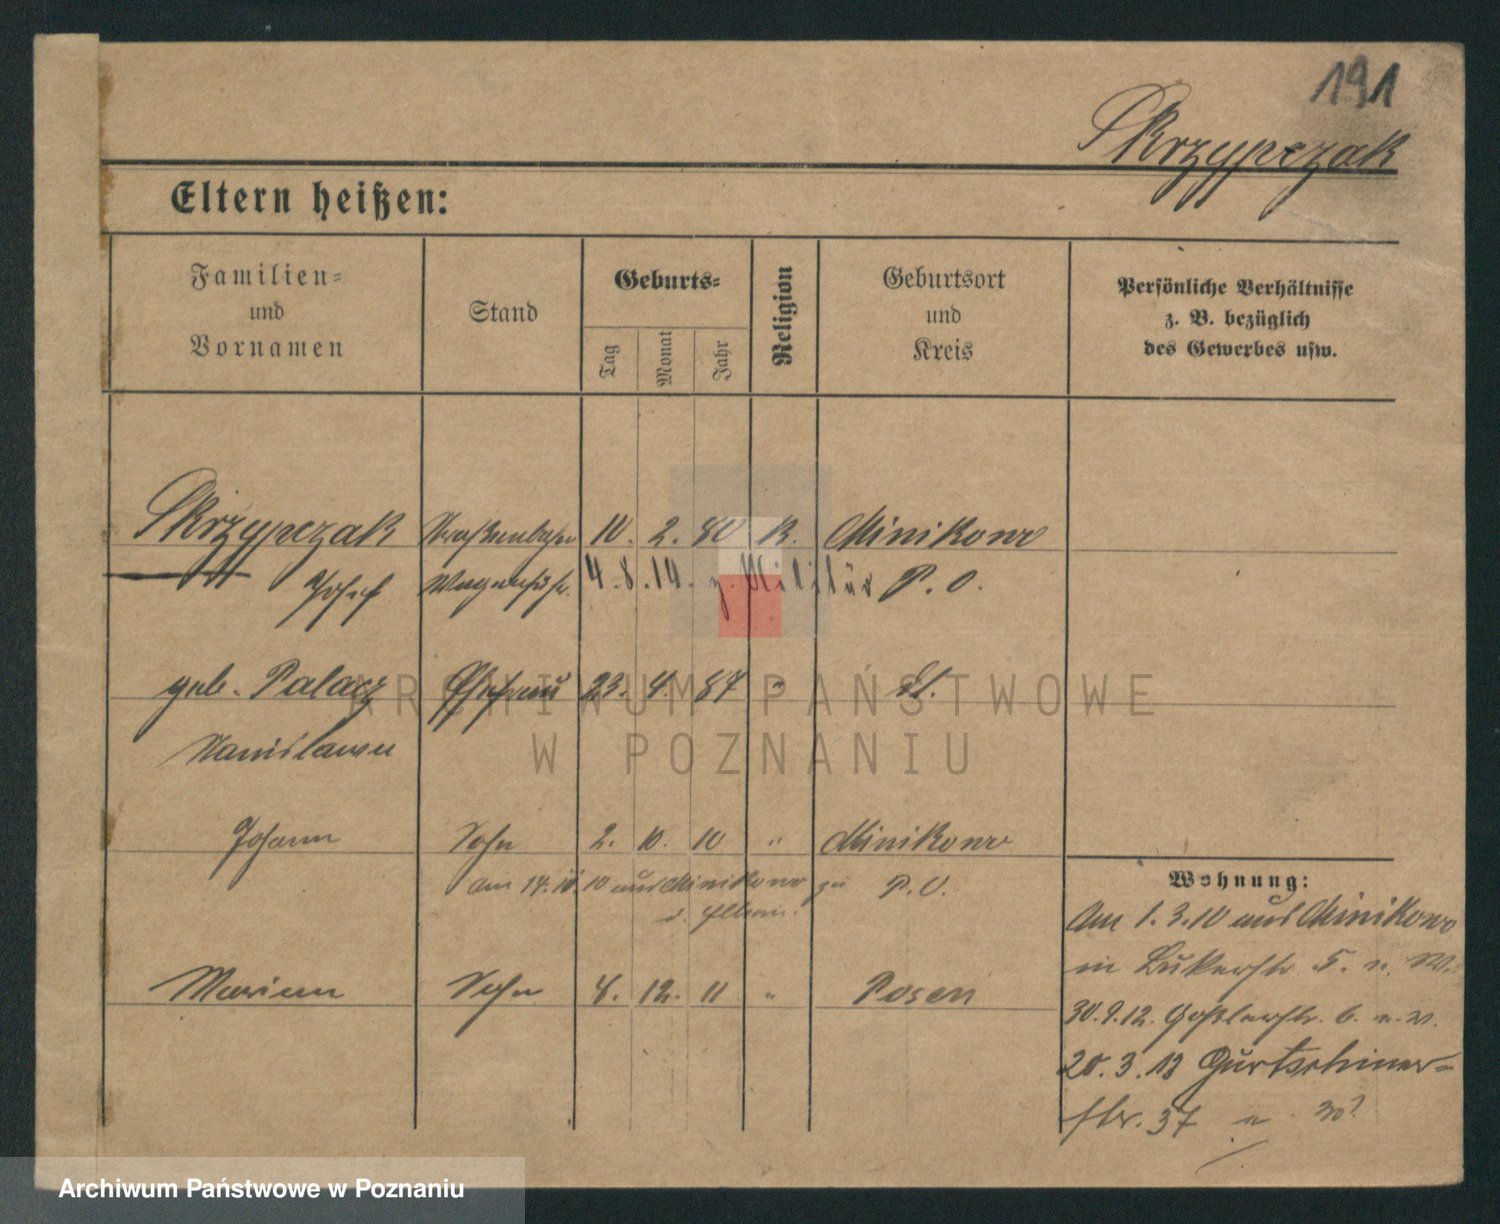 191
Skrzypczak
Eltern heißen:
Familien-
und
Vornamen
Stand
Geburts-
Tag
Monat
Jahr
Religion
Geburtsort
und
Kreis
Persönliche Verhältnisse
z. B. bezüglich
des Gewerbes usw.
Skrzypczak Straßenbahn 10. 2. 80 K. Minikowo
Josef Wagenführ. 4.8.14. z. Militär P. O.
geb. Palacz Ehefrau 23. 4. 87 " dt.
Stanislawa
Johann Sohn 2. 10. 10 " Minikowo
am 14. 10. 10 aus Minikowo zu P. O.
d. Eltern.
Marian Sohn 4. 12. 11 " Posen
Wohnung:
Am 1.3.10 aus Minikowo
in Bukerstr. 5. n. W.
30.9.12. Goßlerstr. 6. n. W.
20.3.13 Gurtschiner-
str. 37
ARCHIWUM PAŃSTWOWE
W POZNANIU
Archiwum Państwowe w Poznaniu